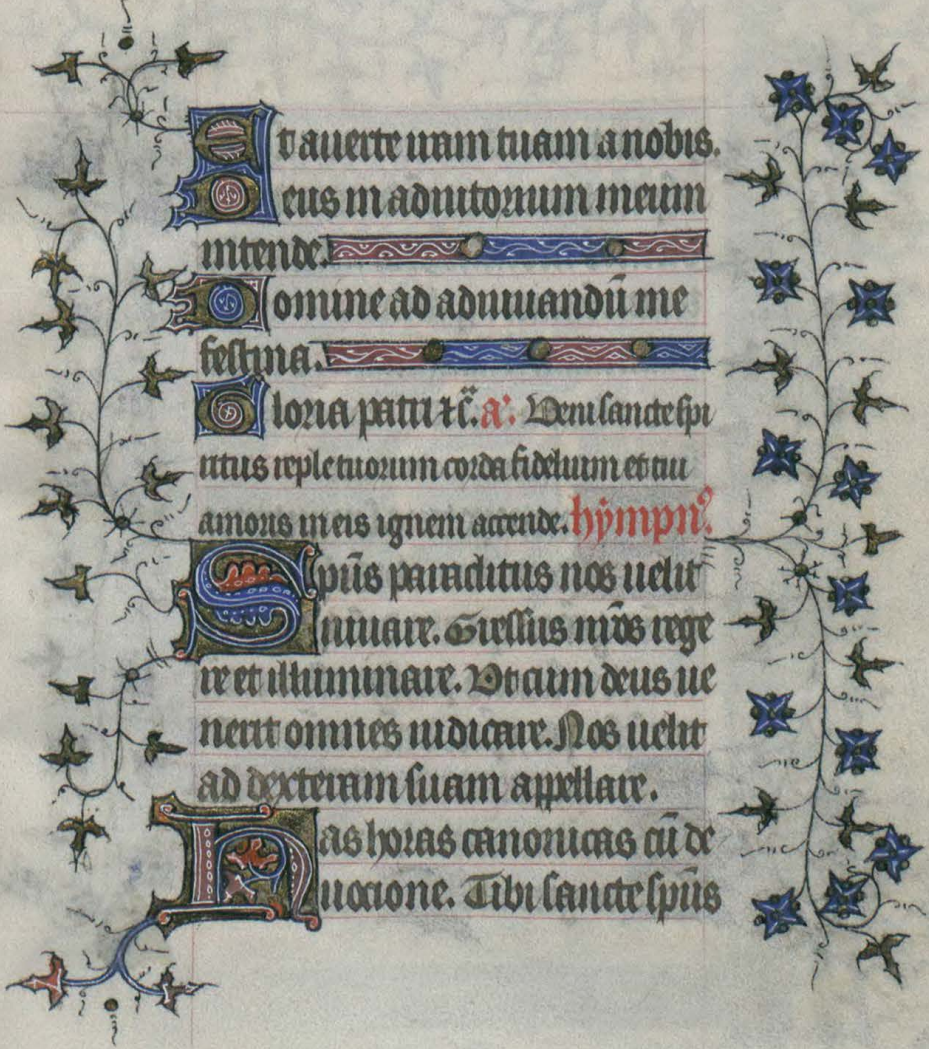 Et auerte iram tuam a nobis.
Deus in adiutorium meum
intende.
Domine ad adiuuandū me
festina.
Gloria patri ⁊c̄. a'. Veni sancte spi
ritus reple tuorum corda fidelium et tui
amoris in eis ignem accende. hympnꝰ.
Spūs paraclitus nos uelit
iuuare. Gressus nr̄os rege
re et illuminare. Vt cum deus ue
nerit omnes iudicare. Nos uelit
ad dexteram suam appellare.
Has horas canonicas cū de
uocione. Tibi sancte spūs